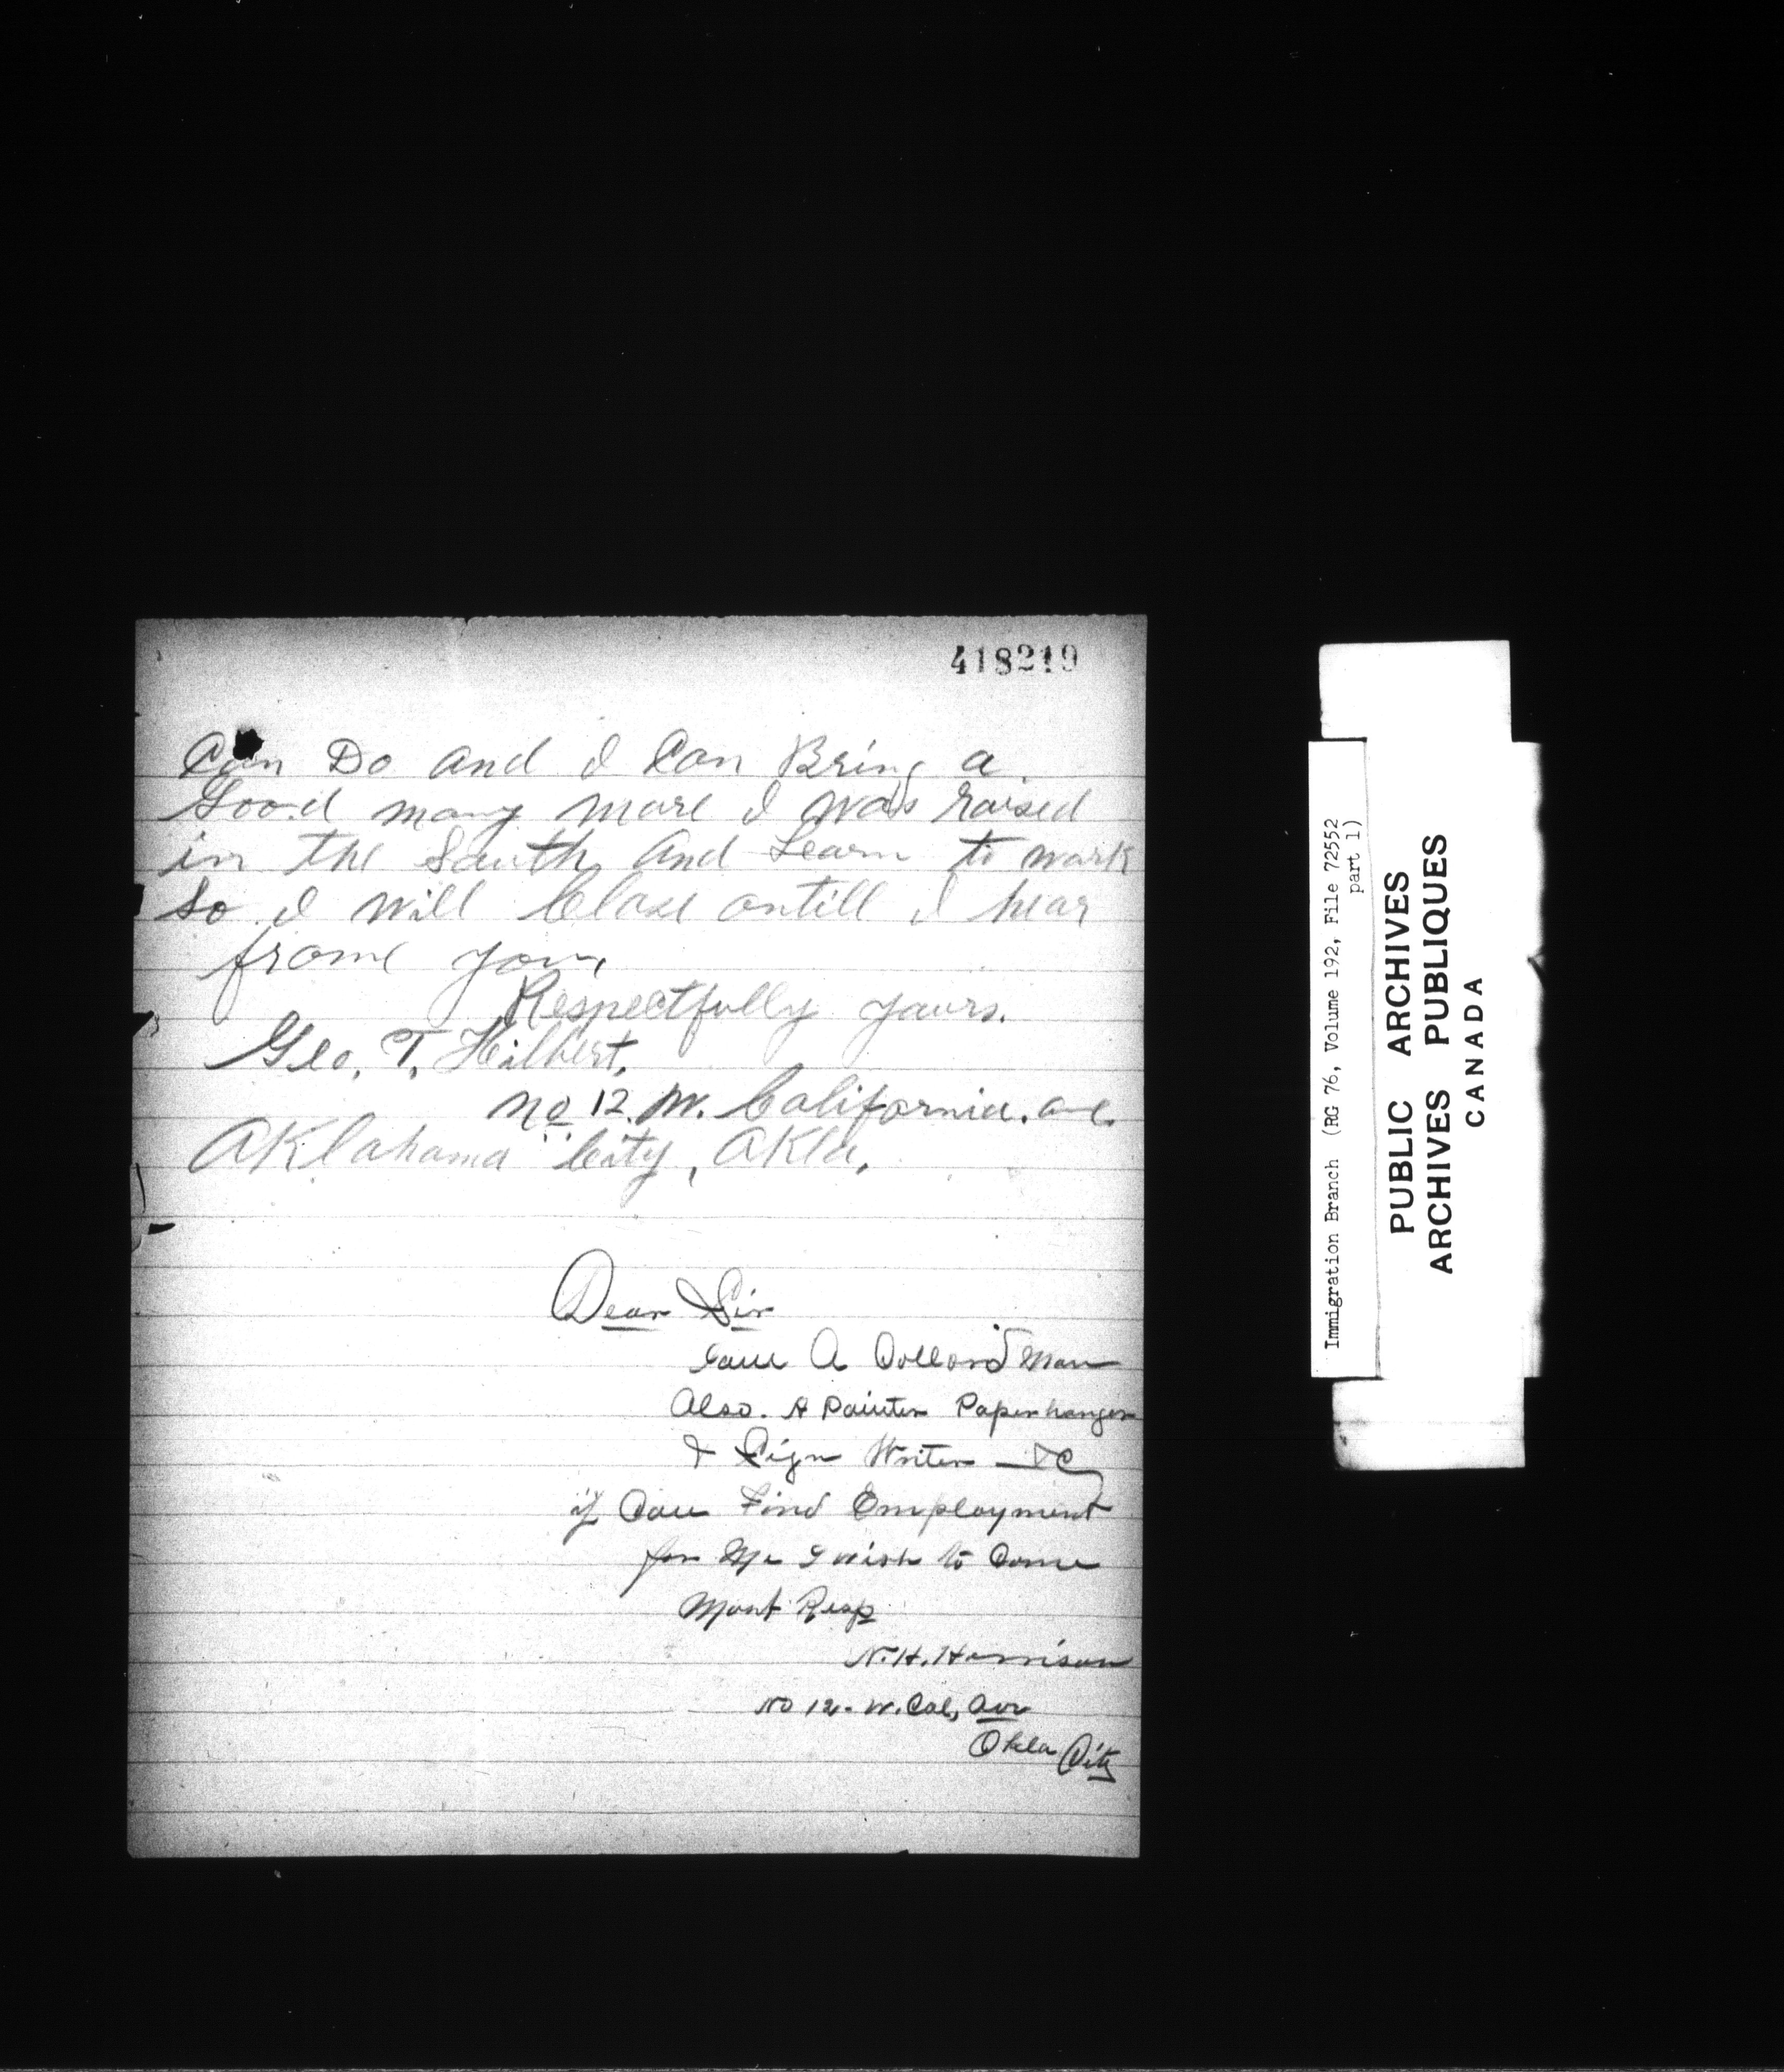 418219
Can Do and I Can Bring a
Good many more I was raised
in the South and Learn to work
So I will Close ontill I hear
frome you,
Respectfully yours.
Geo. T. Hilbert.
No 12. W. California. ave.
Oklahoma City, Okla.
Dear Sir
I am A Collord Man
Also. A Painter Paperhanger
& Sign Writer &C
if Can Find Employment
for Me I wish to Come
Most Resp
N. H. Harrison
No 12 - W. Cal, Ave
Okla City
Immigration Branch (RG 76, Volume 192, File 72552
part 1)
PUBLIC ARCHIVES
ARCHIVES PUBLIQUES
CANADA